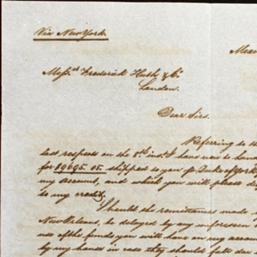 Via New York.
Mess.rs Frederick Huth & Co.
London.
Dear Sirs.
Referring to
last respects on the 5th inst. I have now to hand
for shipped to you p. Duke of York
my account, and which you will please
to my credit,
Should the remittances made
New Orleans, be delayed by any unforeseen
use of the funds you will have on my account
by my hands in case they should fall due